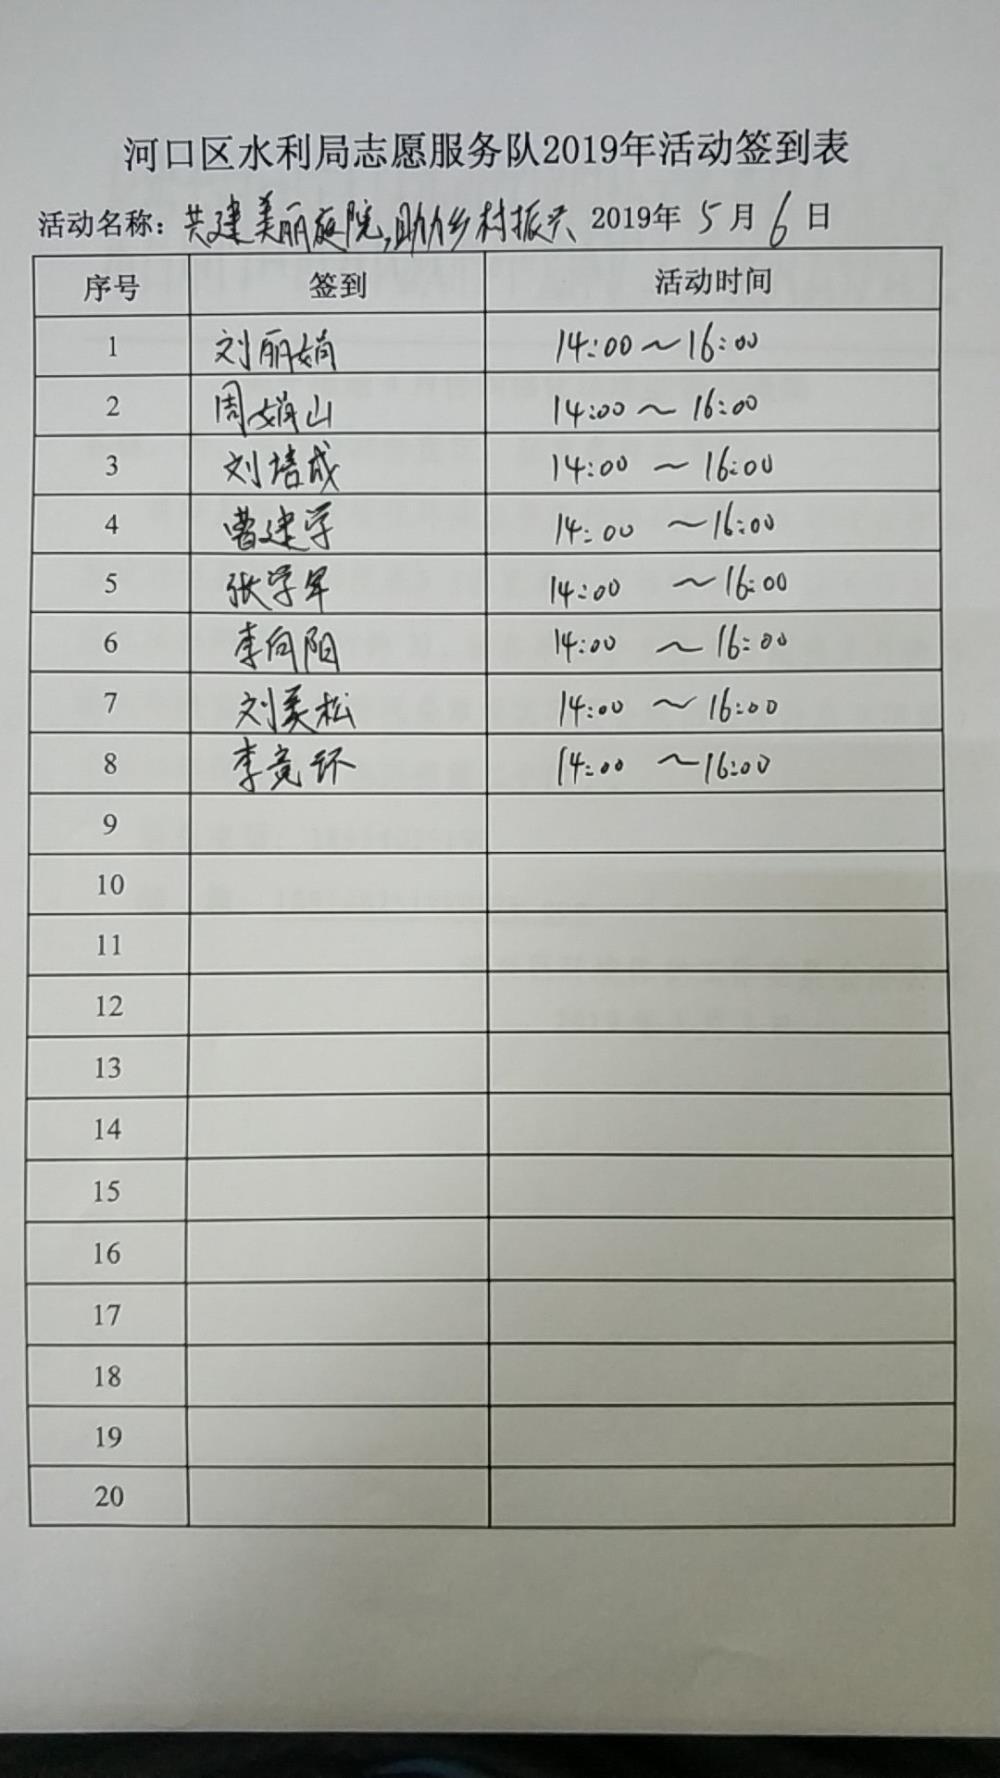 河口区水利局志愿服务队2019年活动签到表
活动名称：共建美丽庭院,助力乡村振兴 2019年 5 月 6 日
序号 签到 活动时间
1 刘丽娟 14:00～16:00
2 周娟山 14:00～16:00
3 刘培成 14:00～16:00
4 曹建学 14:00～16:00
5 张学军 14:00～16:00
6 李向阳 14:00～16:00
7 刘美松 14:00～16:00
8 李竟环 14:00～16:00
9
10
11
12
13
14
15
16
17
18
19
20